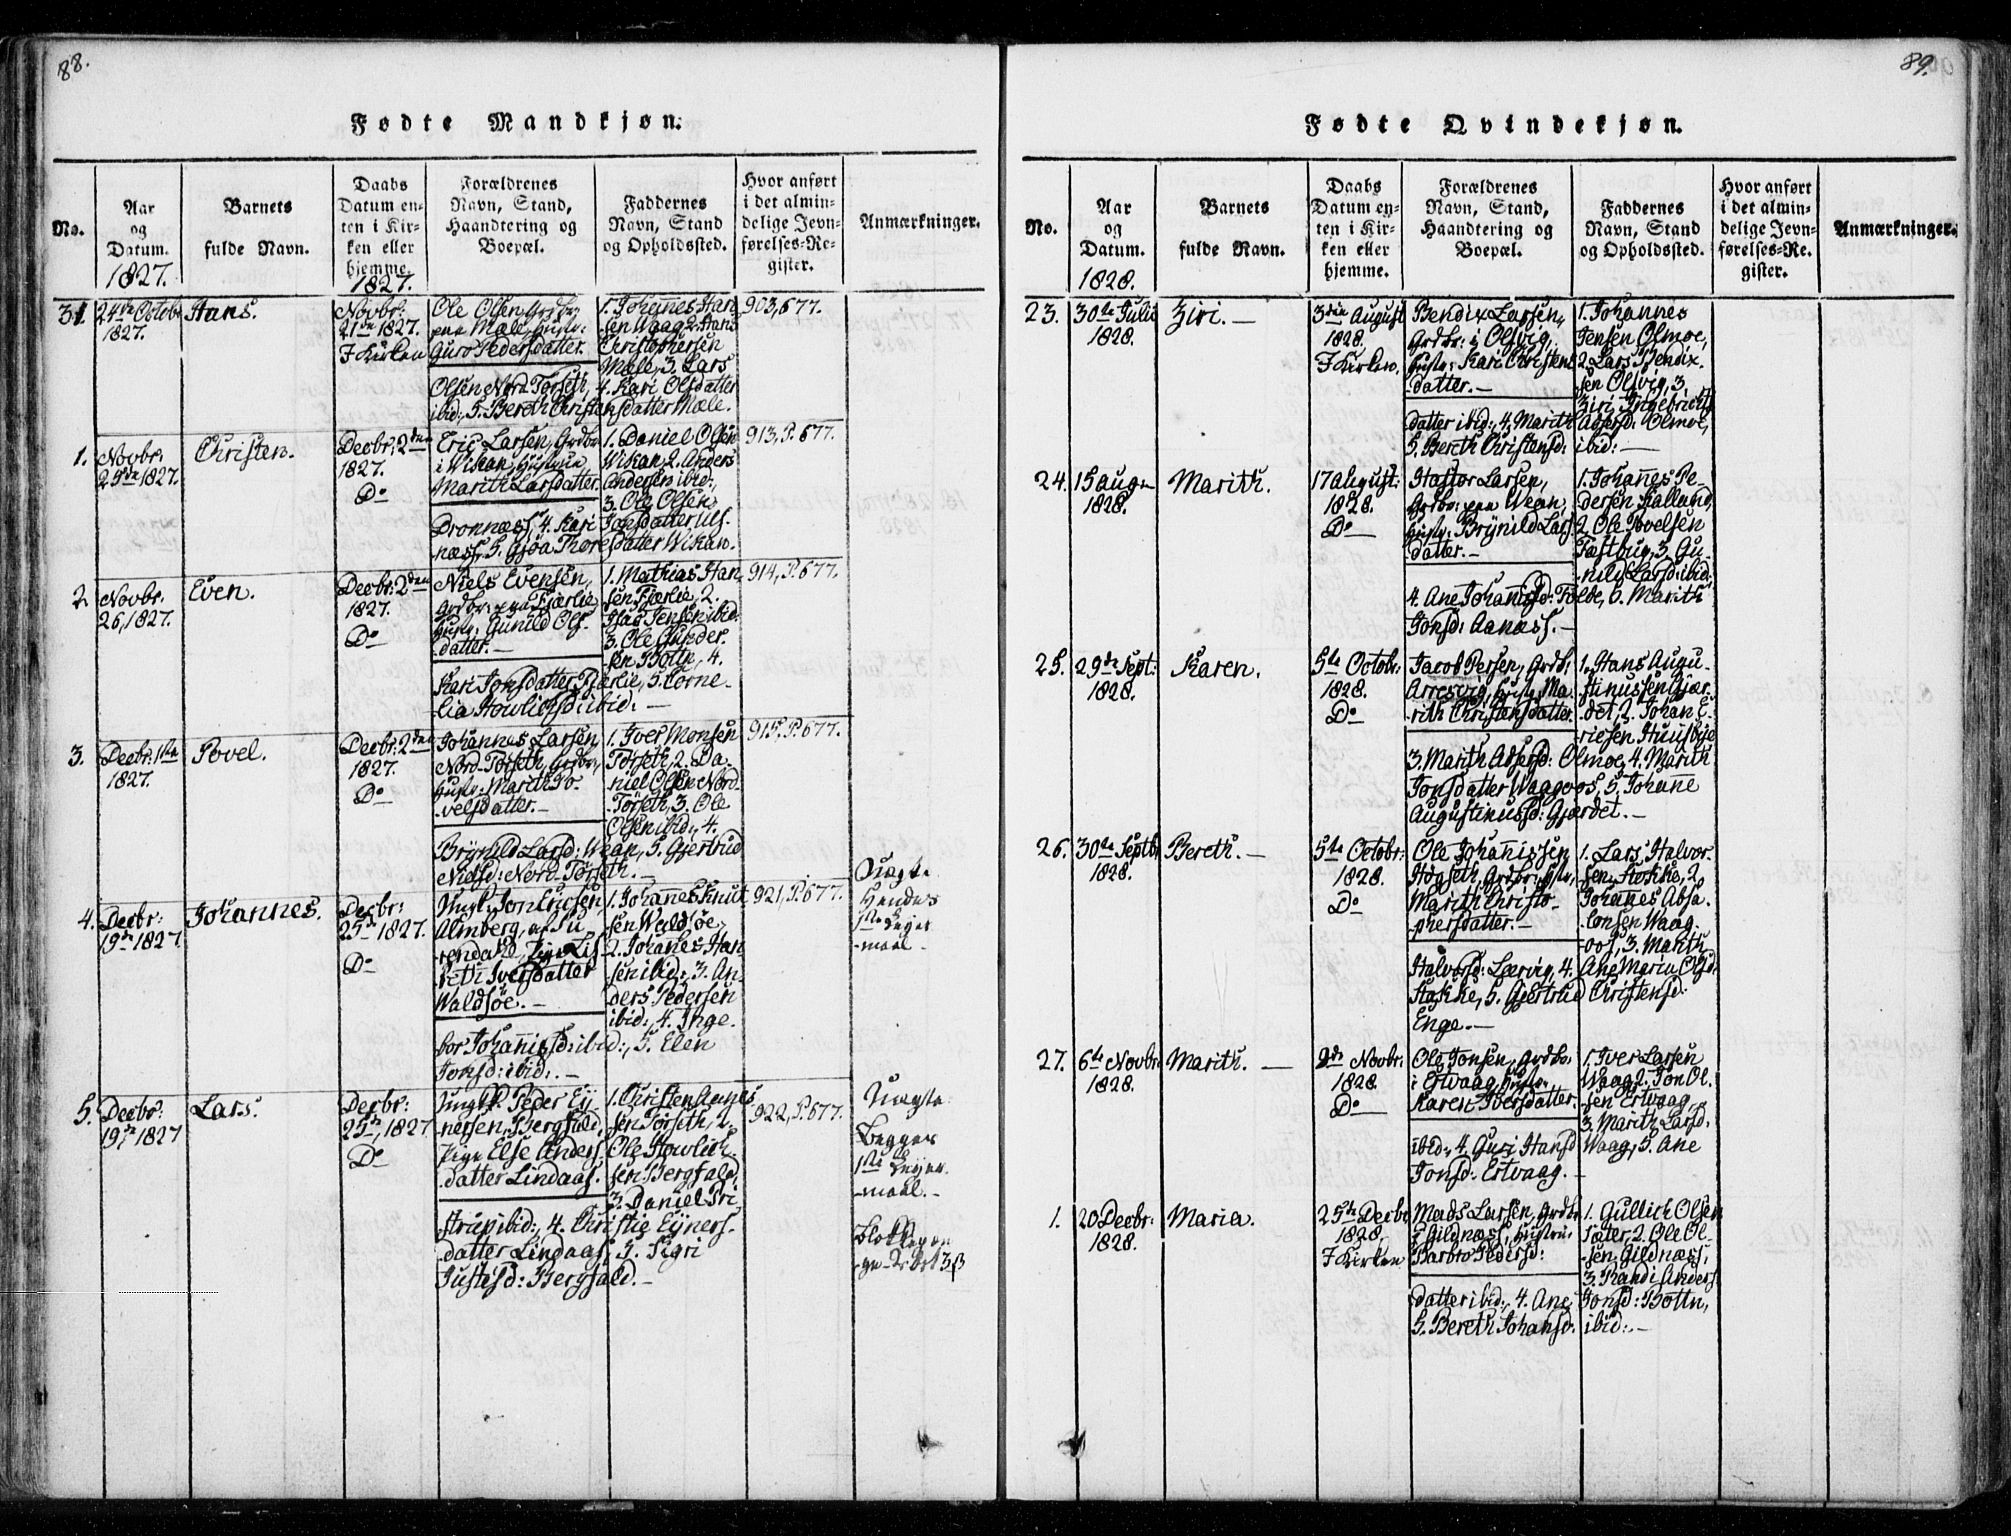 88.
Fødte Mandkjøn.
No.
Aar
og
Datum.
1827.
Barnets
fulde Navn.
Daabs
Datum en-
ten i Kir-
ken eller
hjemme.
1827.
Forældrenes
Navn, Stand,
Haandtering og
Boepæl.
Faddernes
Navn, Stand
og Opholdssted.
Hvor anført
i det almin-
delige Jevn-
førelses-Re-
gister.
Anmærkninger.
31.
24de Octobr
1827.
Hans.
Novbr:
21de 1827.
I Kirken
Ole Olsen Grdbr
paa Mæle, Hustr:
Guro Pedersdatter.
1. Johannes Han
sen Waag 2. Hans
Christophersen
Mæle, 3. Lars
Olsen Nord-Torseth, 4. Kari Olsdatter
ibid:, 5. Bereth Christansdatter Mæle.
903, 677.
1.
Novbr:
25de 1827.
Christen.
Decbr: 2den
1827.
Do
Eric Larsen, Grdbr
i Wikan, Hustrue
Marith Larsdatter.
1. Daniel Olsen
Wikan, 2. Anders
Andersen ibid:,
3. Ole Olsen
Dronnæss, 4. Kari Jonsdatter Uls-
næss, 5. Gjøa Thoresdatter Wikan.
913, P. 677.
2
Novbr.
26, 1827.
Even.
Decbr: 2den
1827.
Do
Niels Evensen,
Grdbr: paa Fjærlie
Hustr: Gunild Ols-
datter.—
1. Mathias Han
sen Fjærlie, 2.
Isac Jensen ibid:
3. Ole Gunder-
sen Botten, 4.
Kari Jonsdatter Fjærlie, 5. Corne-
lia Howlichsd: ibid:—
914, P. 677.
3.
Decbr: 1ste
1827.
Povel.
Decbr: 2den
1827.
Do
Johannes Larsen
Nord-Torseth, Grdbr,
Hustr: Marith Po-
velsdatter.—
1. Iver Monsen
Torseth, 2. Da-
niel Olsen Nord-
Torseth, 3. Ole
Olsen ibid:, 4.
Brynild Larsd: Wean, 5. Gjertrud
Nielsd: Nord-Torseth.—
915, P. 677.
4.
Decbr:
19de 1827
Johannes.
Decbr:
25de 1827.
Do
Ungk. Jon Ericsen
Almberg, af Su
rendahl, Pige Lis
beth Iversdatter
Waldsøe.—
1. Johannes Knut
sen Waldsøe,
2. Johannes Han
sen ibid:, 3. An-
ders Pedersen
ibid:, 4. Inge-
bor Johannisd: ibid:, 5. Elen
Jonsd: ibid:.—
921, P. 677.
Uægte.
Hendes
1ste Leyer
maal.
5.
Decbr:
19de 1827
Lars.
Decbr:
25de, 1827.
Do
Ungk. Peder Ey
nersen, Bergfald,
Pige Else Anders
datter Lindaas.
1. Christen
sen Torseth, 2.
Ole Howlich-
sen Bergfald,
3. Daniel Pri
strup ibid:, 4. Christie Eyners-
datter Lindaas, 5. Sigri
Justisd: Bergfald.—
922, P. 677.
Uægte.
Begges
1ste Leyer-
maal.—
89.
Fødte Qvindekjøn.
No.
Aar
og
Datum.
1828.
Barnets
fulde Navn.
Daabs
Datum en-
ten i Kir-
ken eller
hjemme.
Forældrenes
Navn, Stand,
Haandtering og
Boepæl.
Faddernes
Navn, Stand
og Opholdssted.
Hvor anført
i det almin-
delige Jevn-
førelses-Re-
gister.
Anmærkninger.
23.
30de Julii
1828.
Ziri.—
3die August
1828.
I Kirken.
Bendix Larsen,
Grdbr: i Olsvig,
Hustr: Kari Christens
datter.—
1. Johannes
Jensen Olmoe,
2. Lars Bendix-
sen Olsvig, 3.
Ziri Ingebrichts
datter ibid:, 4. Marith Adsersd: Olmoe,
5. Bereth Christensd: ibid:—
24.
15 Aug
1828.
Marith.
17 August:
1828.
Do
Hastor Larsen,
Grdbr: paa Wean,
Hustr: Brynild Lars
datter.—
1. Johannes Pe-
dersen Kalland,
2. Ole Povelsen
Fæstbug, 3. Gu-
nild Larsd: ibid:
4. Ane Johansd: Folde, 6. Marith
Jonsd: Aanæss.—
25.
29de Sept:
1828.
Karen.
5te Octobr:
1828.
Do
Jacob Persen, Grdb:
Arresvig, Hustr: Ma-
rith Christansdatter
1. Hans Augu-
stinussen Gjær-
det, 2. Johan E-
ricsen Huusbye
3. Marith Adsersd: Olmoe, 4. Marith
Jonsdatter Waagoos, 5. Johanne
Augustinussd: Gjærdet.—
26.
30te Septbr
1828.
Bereth.—
5te Octobr:
1828.
Do
Ole Johannissen
Hogseth, Grdbr: Hstr,
Marith Christo-
phersdatter.—
1. Lars Halvor-
sen Stokke, 2.
Johannes Absa-
lonsen Waag-
oos, 3. Marith
Halvorsd: Leervig, 4. Ane Maria Olsd:
Stokke, 5. Gjertrud Christensd:
Enge.—
27.
6te Novbr
1828.
Marith.—
9de Novbr:
1828.
Do
Ole Jonsen, Grdbr:
i Ertvaag, Hustr:
Karen Iversdatter.
1. Iver Larsen
Waag 2. Jon Ol-
sen Ertvaag
3. Marith Larsd:
ibid:, 4. Guri Hansd Waag, 5. Ane
Jonsd: Ertvaag.—
1.
20 Decbr:
1828.
Maria.
25de Decbr
1828.
I Kirken
Mads Larsen, Grdbr
i Gildnæss, Hustru:
Barbro Pedersd:
1. Gullich Olsen
Sæter, 2. Ole Ol-
sen Gildnæss,
3. Randi Anders
datter ibid:, 4. Ane Jonsd: Bottn,
5. Bereth Johansd: ibid:—